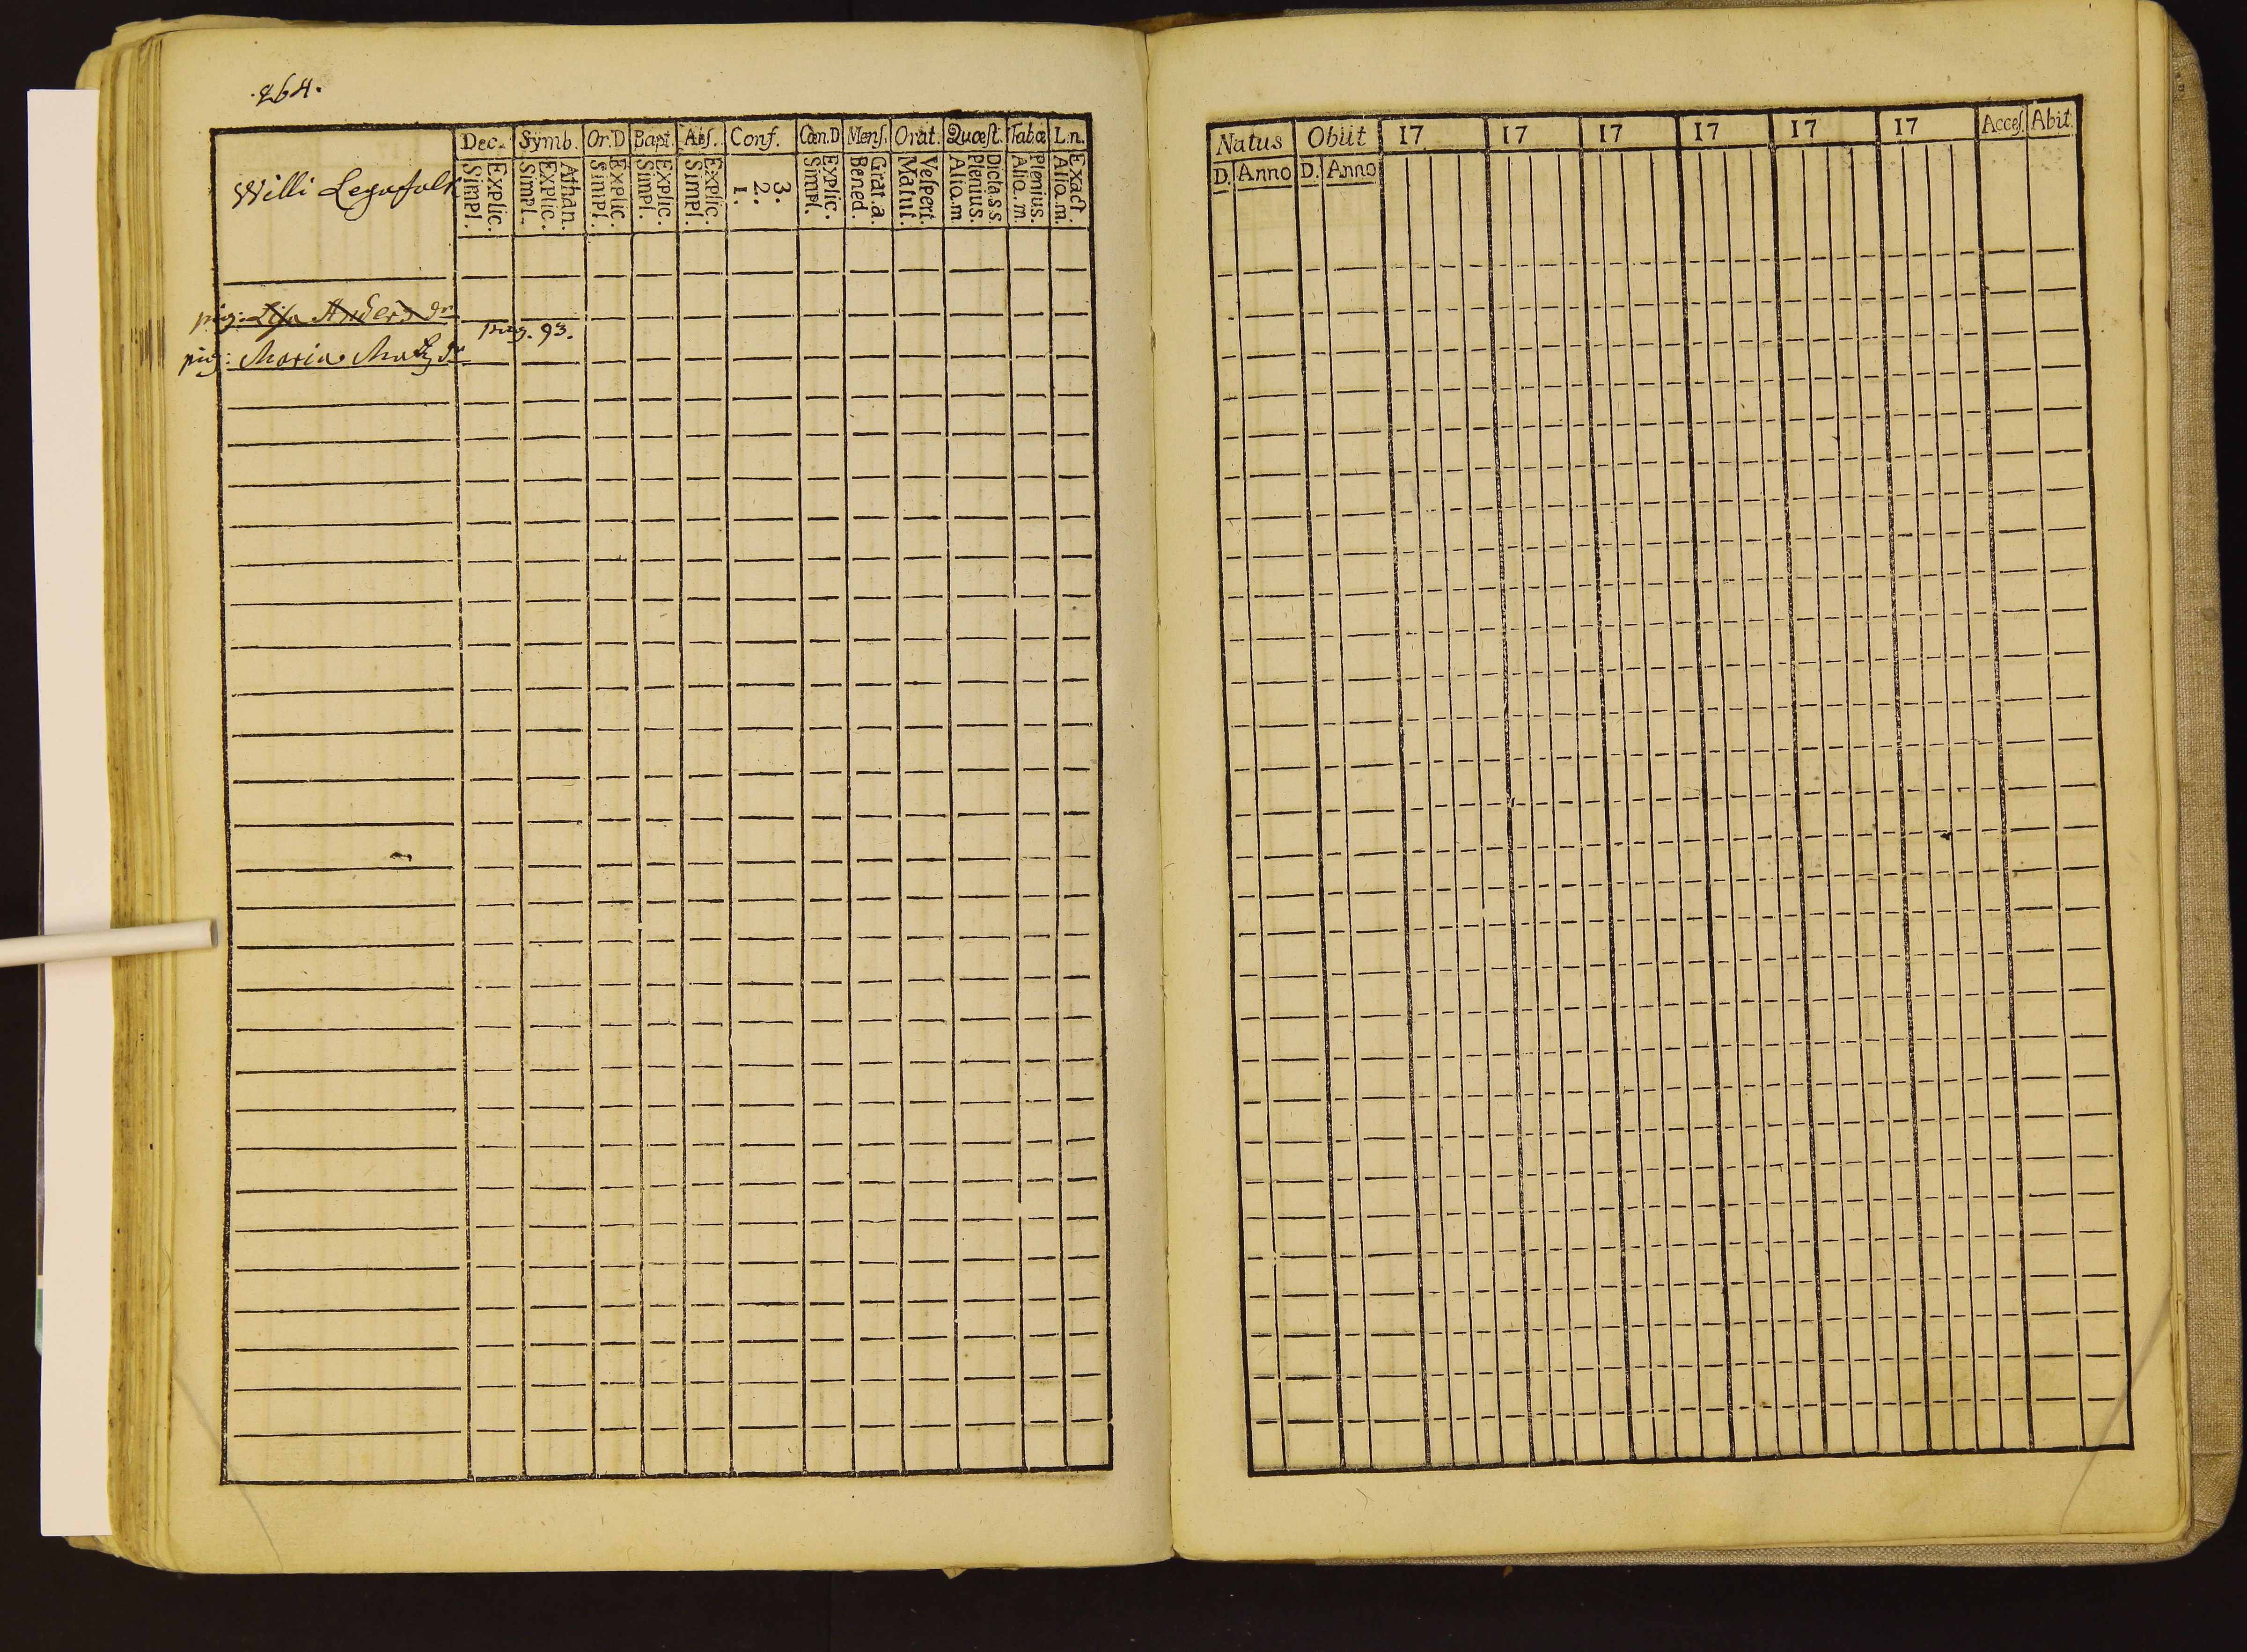 264.
Dec. Symb. Or.D Bapt. Abs. Conf. Cœn.D Mens. Orat. Quæst. Tab.œ L.n.
Willi Legofolk
Simpl. Explic. Simpl. Explic. Athan. Simpl. Explic. Simpl. Explic. Simpl. Explic. 1. 2. 3. Simpl. Explic. Bened. Grat.a. Matut. Vespert. Alio.m. Plenius. Dicta.s.s. Alio.m. Plenius. Alio.m. Exact.
pig: Lisa Anders dr
pag. 93.
pig: Maria Matz dr
Natus Obiit 17 17 17 17 17 17 Acces. Abit.
D. Anno D. Anno